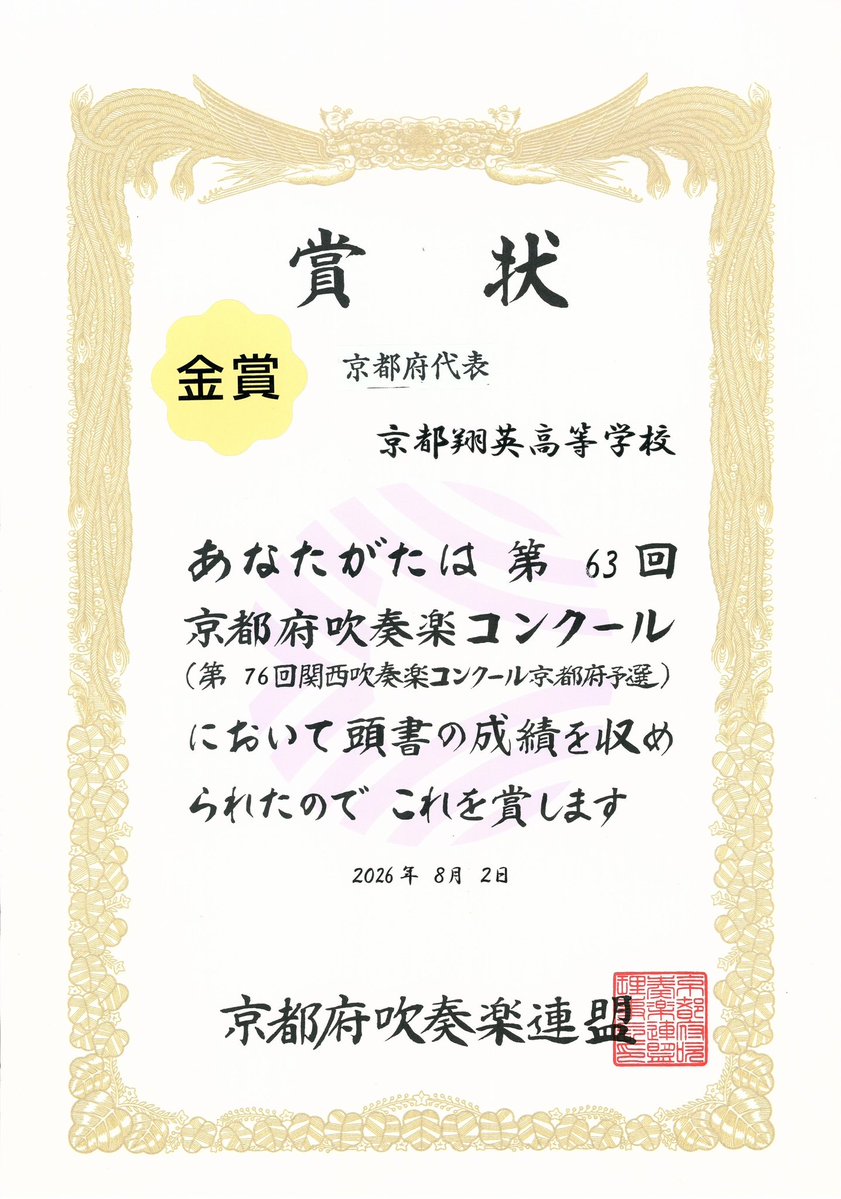 賞状
金賞
京都府代表
京都翔英高等学校
あなたがたは 第 63 回
京都府吹奏楽コンクール
(第 76回関西吹奏楽コンクール京都府予選)
において頭書の成績を収め
られたので これを賞します
2026 年 8月 2日
京都府吹奏楽連盟